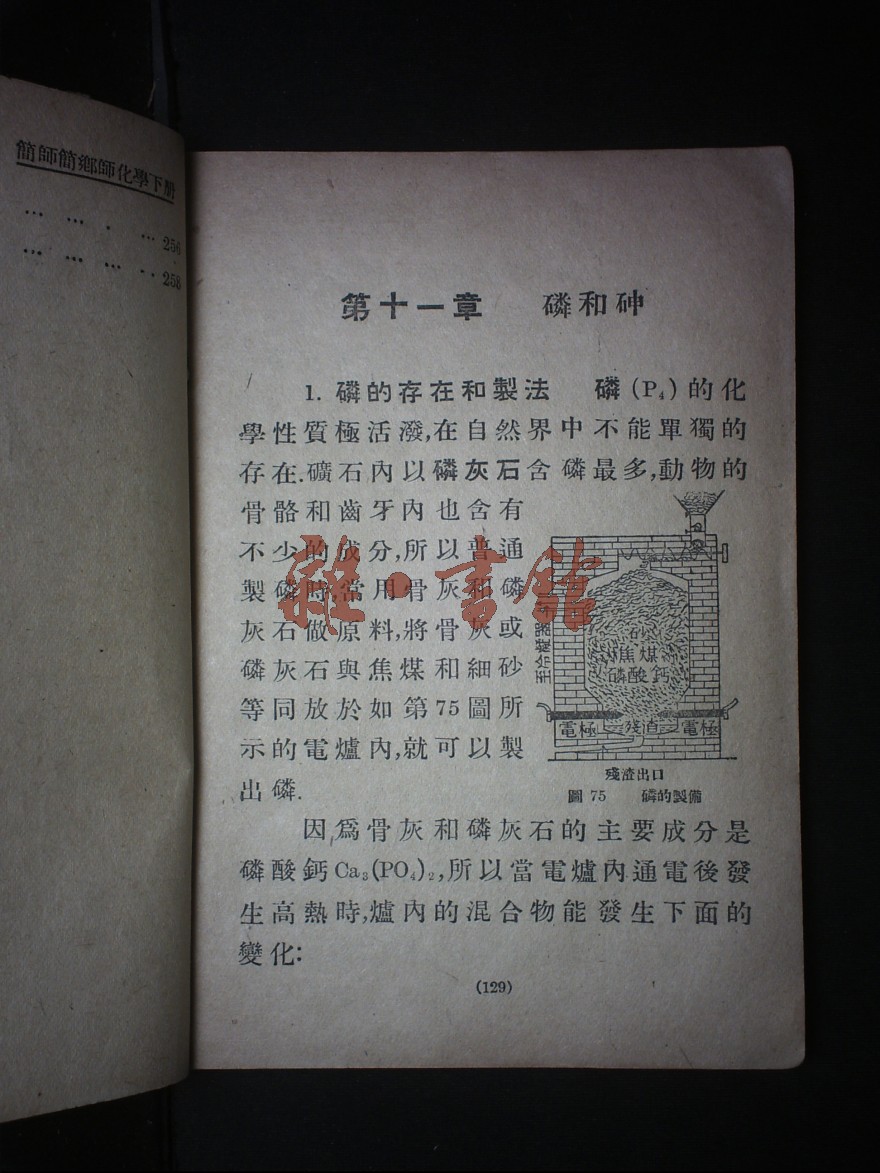 簡師簡鄉師化學下册
… … . … 256
… … … .. 258
第十一章 磷和砷
1. 磷的存在和製法 磷(P₄)的化
學性質極活潑,在自然界中不能單獨的
存在.礦石內以磷灰石含磷最多,動物的
骨骼和齒牙內也含有
不少的成分,所以普通
製磷時,常用骨灰和磷
灰石做原料,將骨灰或
磷灰石與焦煤和細砂
等同放於如第75圖所
示的電爐內,就可以製
出磷.
至冷凝器
砂
焦煤
磷酸鈣
電極 殘渣 電極
殘渣出口
圖 75 磷的製備
因爲骨灰和磷灰石的主要成分是
磷酸鈣Ca₃(PO₄)₂,所以當電爐內通電後發
生高熱時,爐內的混合物能發生下面的
變化:
(129)
雜·書館